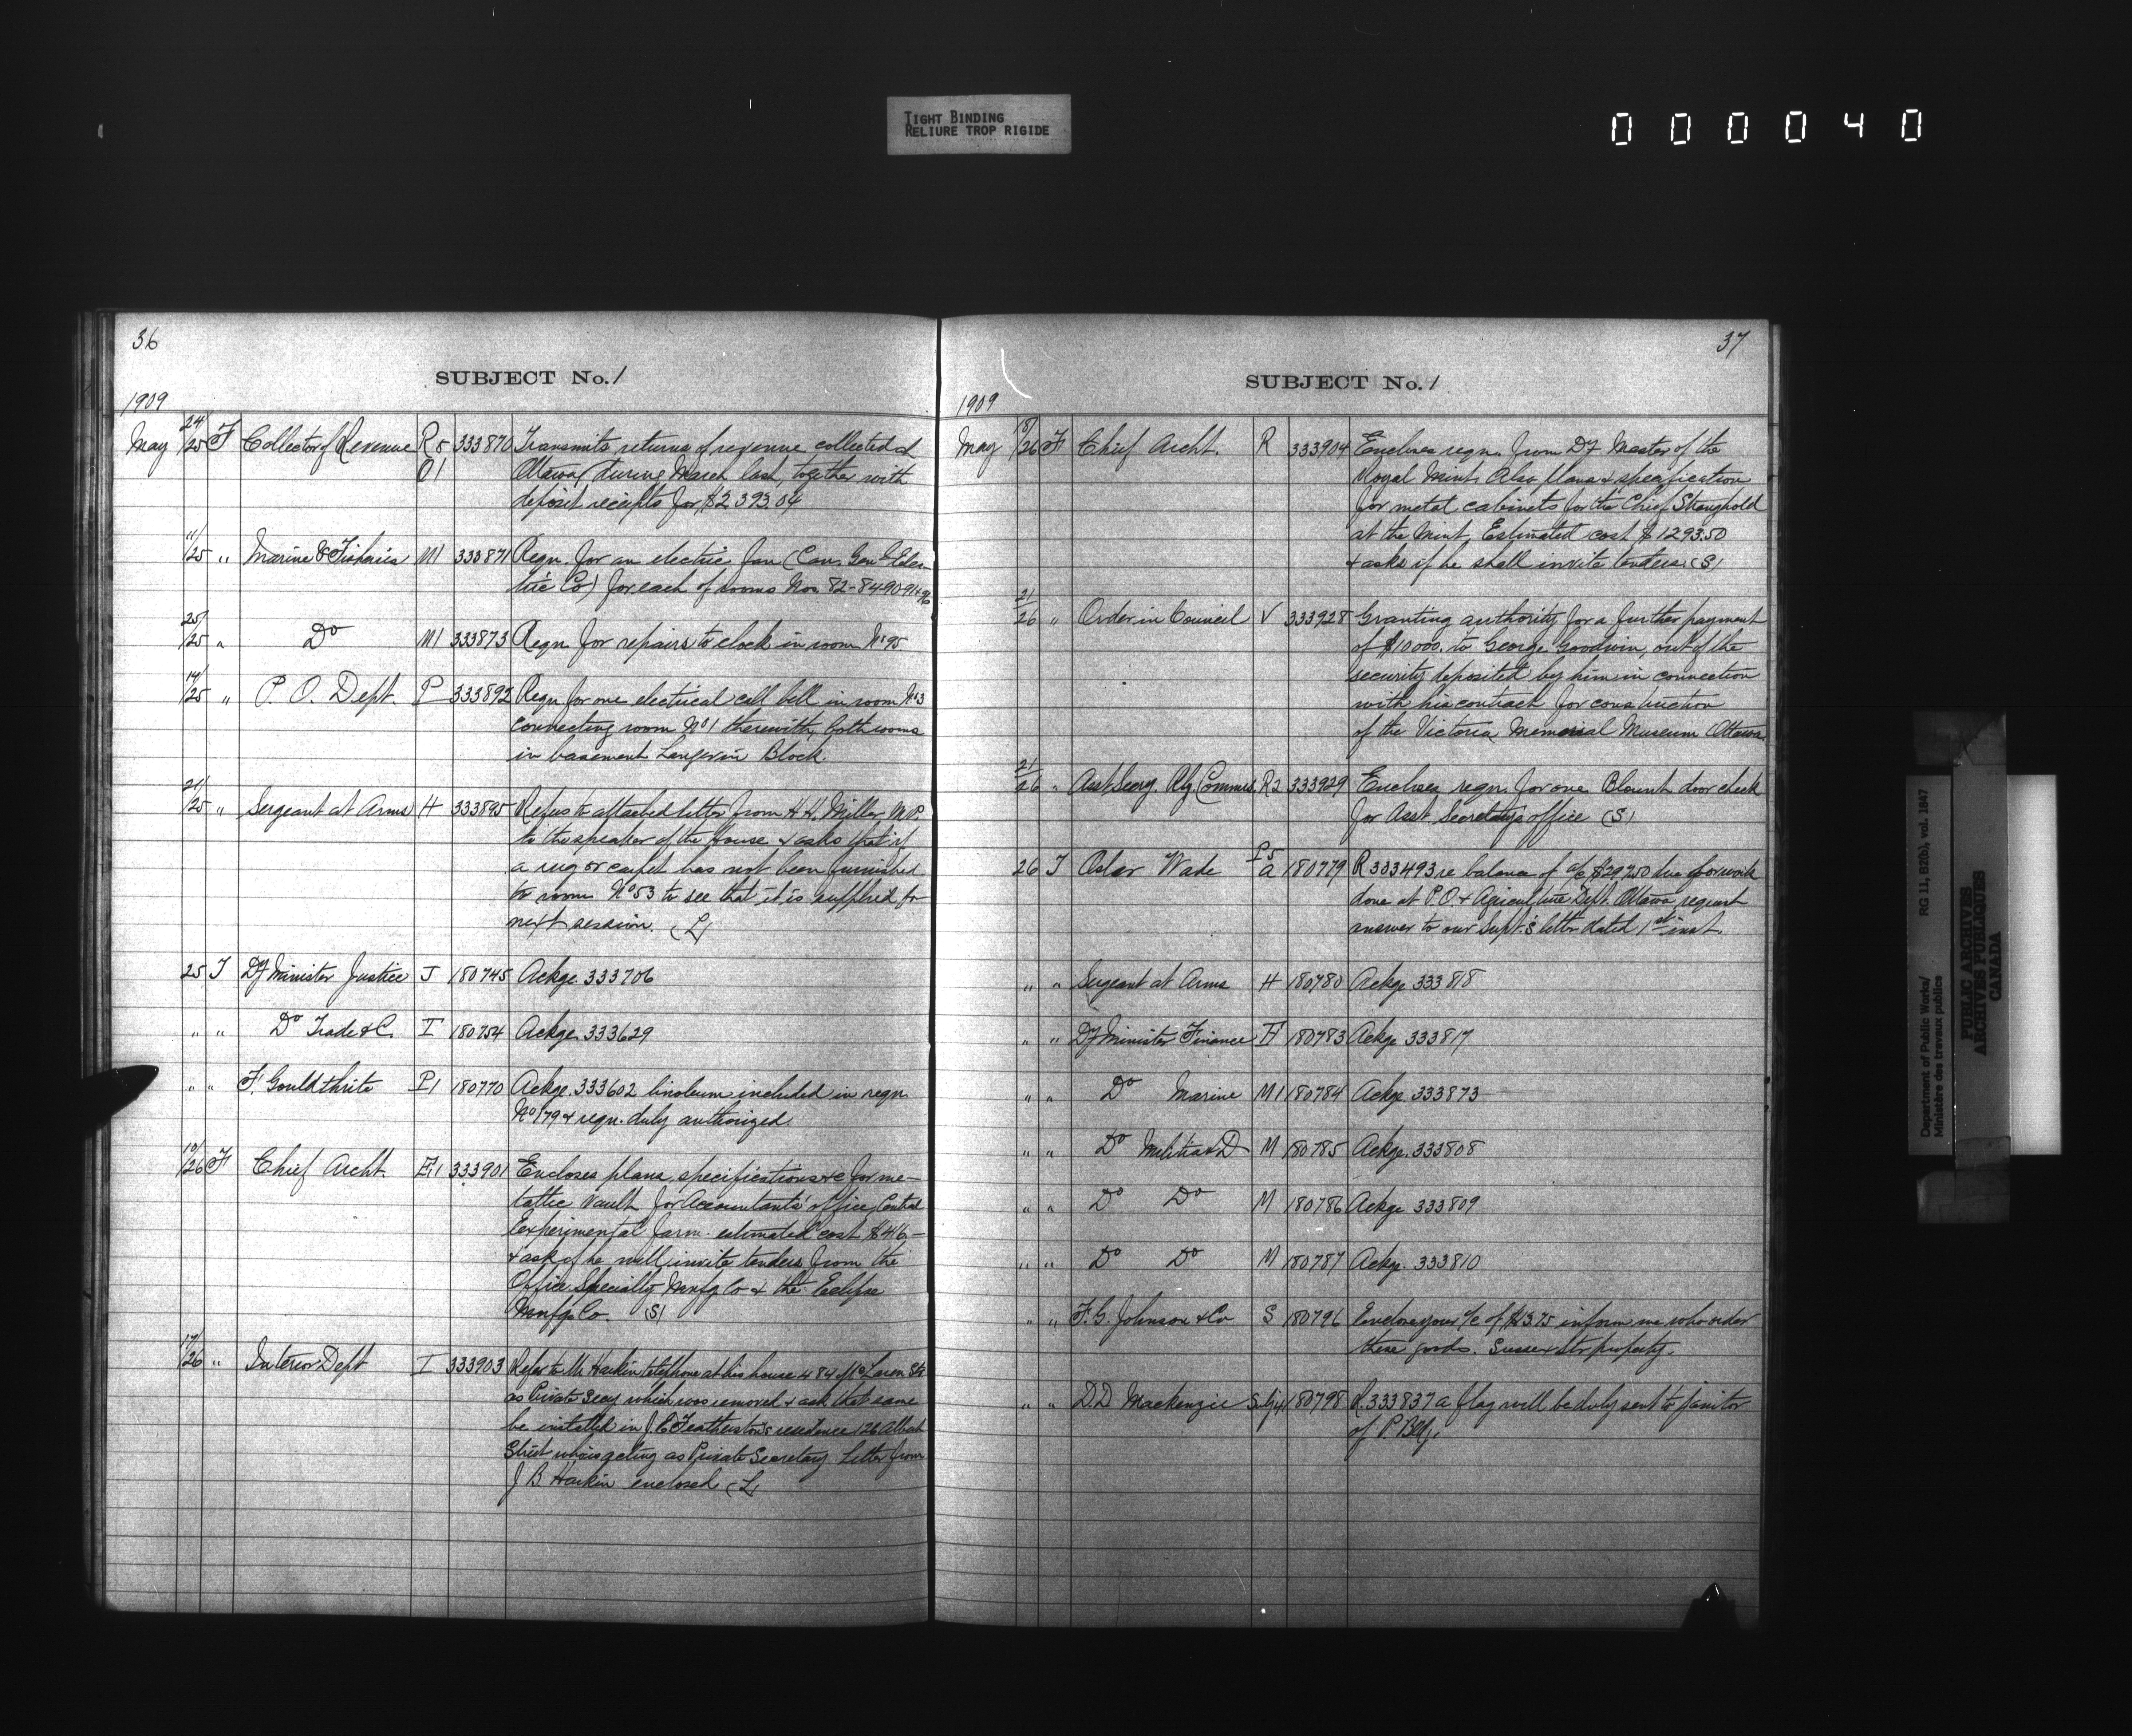 TIGHT BINDING
RELIURE TROP RIGIDE
000040
36
SUBJECT No. 1
1909
May 24/25 F Collector of Revenue R5 333870 Transmits returns of revenue collected at
O1 Ottawa during March last, together with
deposit receipts for $2393.04
11/25 " Marine & Fisheries M1 333871 Reqn. for an electric fan (Can. Genl Elec-
tric Co) for each of rooms Nos. 82-84-90-91 & 96
25/25 " Do M1 333873 Reqn. for repairs to clock in room No 95
14/25 " P. O. Dept. P 333892 Reqn. for one electrical call bell in room No 3
connecting room No 1 therewith, both rooms
in basement Langevin Block.
21/25 " Sergeant at Arms H 333895 Refers to attached letter from H. H. Miller M.P.
to the speaker of the House & asks that if
a rug or carpet has not been furnished
to room No 53 to see that it is supplied for
next session. (L)
25 T Dy Minister Justice J 180745 Ackge. 333706
" " Do Trade & C. T 180754 Ackge. 333629
" " F. Gouldthrite P1 180770 Ackge. 333602 linoleum included in reqn.
No 179 & reqn. duly authorized.
10/26 F Chief Archt. E1 333901 Encloses plans, specifications &c for me-
tallic vault for Accountants' office, Central
Experimental farm. estimated cost $416-
& ask if he will invite tenders from the
Office Specialty Mnfg Co & the Eclipse
Mnfg. Co. (S)
17/26 " Interior Dept I 333903 Refers to Mr Harkin telephone at his house 484 McLaren St.
as Private Secy which was removed & ask that same
be installed in J. C. Featherston's residence 126 Albert
Street who is acting as Private Secretary Letter from
J B Harkin enclosed (L)
37
SUBJECT No. 1
1909
May 18/26 F Chief Archt. R 333904 Encloses reqn. from Dy Master of the
Royal Mint. Also plans & specification
for metal cabinets for the Chief Stronghold
at the Mint. Estimated cost $1293.50
& asks if he shall invite tenders. (S)
21/26 " Order in Council V 333928 Granting authority for a further payment
of $10000. to George Goodwin, out of the
security deposited by him in connection
with his contract for construction
of the Victoria Memorial Museum Ottawa.
21/26 " Asst Secry. Rly Commrs. R2 333929 Encloses reqn. for one Blount door check
for Asst. Secretary's office (S)
P5
26 T Oslar Wade A 180779 R 333493 re balance of a/c $297.50 due for work
done at P.O. & Agriculture Dept. Ottawa request
answer to our Supt.'s letter dated 1st inst.
" " Sergeant at Arms H 180780 Ackge 333818
" " Dy Minister Finance F 180783 Ackge 333817
" " Do Marine M1 180784 Ackge. 333873
" " Do Militia & D M 180785 Ackge. 333808
" " Do Do M 180786 Ackge 333809
" " Do Do M 180787 Ackge. 333810
" " F. G. Johnson & Co S 180796 Enclose your a/c of $13.75 inform me who order
these goods. Sussex Str property.
" " D.D Mackenzie Subj 4 180798 R. 333837 a flag will be duly sent to janitor
of P. Bldg.
Department of Public Works/
Ministère des travaux publics
RG 11, B2(b), vol. 1847
PUBLIC ARCHIVES
ARCHIVES PUBLIQUES
CANADA